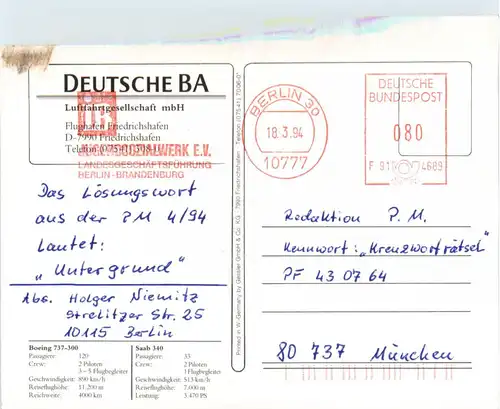 DEUTSCHE BA
Luftfahrtgesellschaft mbH
Flughafen Friedrichshafen
D-7990 Friedrichshafen
Telefon
SOZIALWERK E.V.
LANDESGESCHÄFTSFÜHRUNG
BERLIN-BRANDENBURG
Das Lösungswort
aus der PM 4/94
Lautet:
„Untergrund"
Abs. Holger Niemitz
Strelitzer Str. 25
10115 Berlin
Boeing 737-300
Passagiere: 120
Crew: 2 Piloten
3 – 5 Flugbegleiter
Geschwindigkeit: 890 km/h
Reiseflughöhe: 11.200 m
Reichweite: 4000 km
Saab 340
Passagiere: 33
Crew: 2 Piloten
1 Flugbegleiter
Geschwindigkeit: 513 km/h
Reiseflughöhe: 7.000 m
Leistung: 3.470 PS
Printed in W.-Germany by Gessler GmbH & Co. KG · 7990 Friedrichshafen · Telefon (07541)
BERLIN 30
18.3.94
10777
DEUTSCHE
BUNDESPOST
080
F 91 4689
Redaktion P.M.
Kennwort: „Kreuzworträtsel"
PF 43 07 64
80 737 München